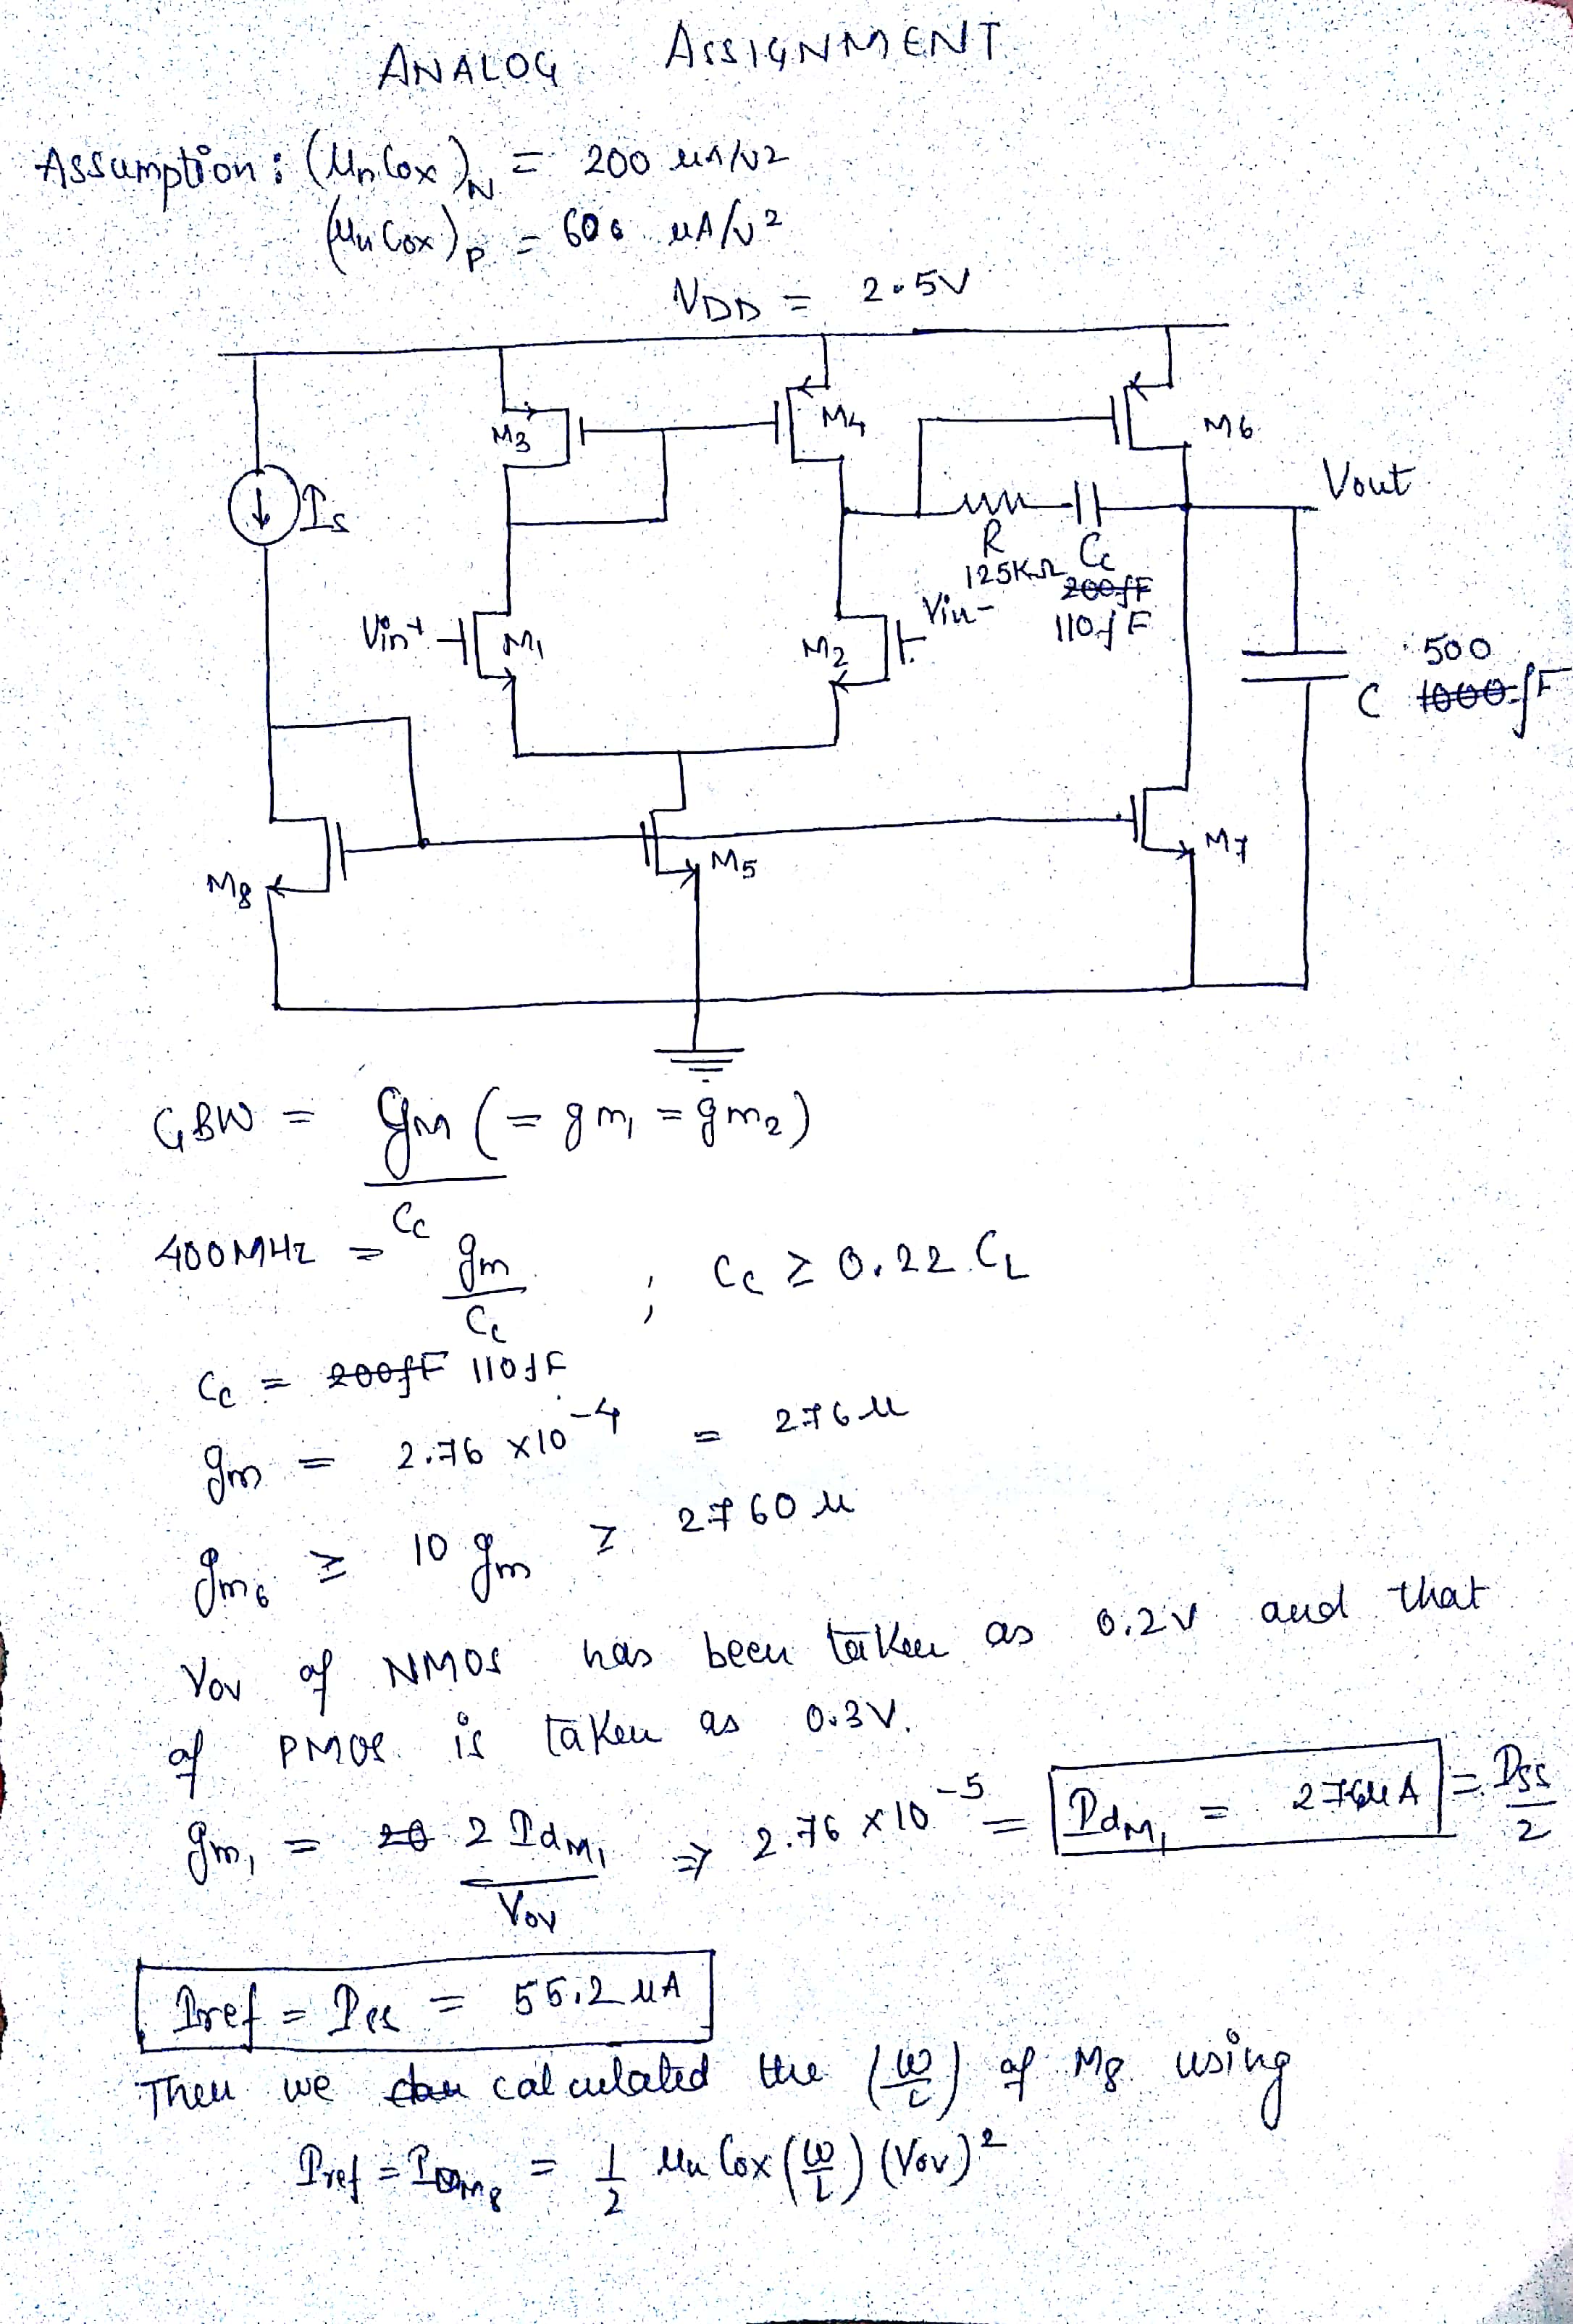 ANALOG ASSIGNMENT
Assumption : (μn Cox)N = 200 uA/V2
(μn Cox)P = 600 uA/V2
VDD = 2.5V
M3
M4
M6
Is
Vout
R
Cc
125KΩ
200fF
Vin+
M1
M2
Vin-
110fF
500
C 1000fF
M8
M5
M7
GBW = gm (= gm1 = gm2)
Cc
400MHz = gm ; Cc ≥ 0.22 CL
Cc
Cc = 200fF 110fF
gm = 2.76 x10-4 = 276 u
gm6 ≥ 10 gm ≥ 2760 u
Vov of NMOS has been taken as 0.2V and that
of PMOS is taken as 0.3V.
gm1 = 20 2 IdM1 ⇒ 2.76 x 10-5 = IdM1 = 276uA = Iss
Vov 2
Iref = Iss = 55.2 uA
Then we can calculated the (W/L) of M8 using
Iref = IDM8 = 1/2 un Cox (W/L) (Vov)2